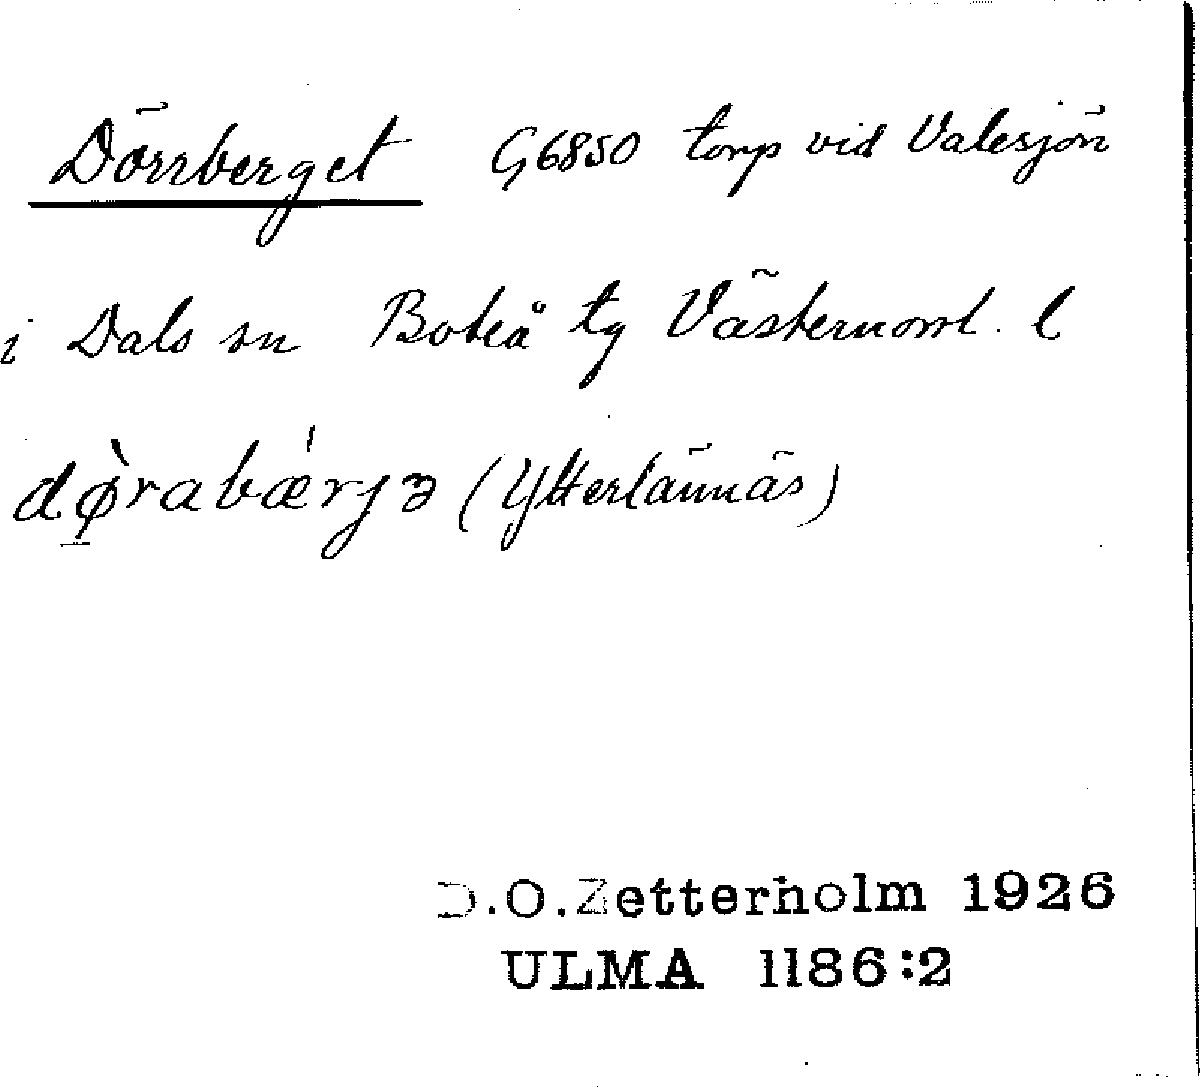 Dörrberget G6850 torp vid Valesjön
i Dals sn Boteå tg Västernorrl. l
dø̀rabǽrjə (Ytterlännäs)
D.O.Zetterholm 1926
ULMA 1186:2